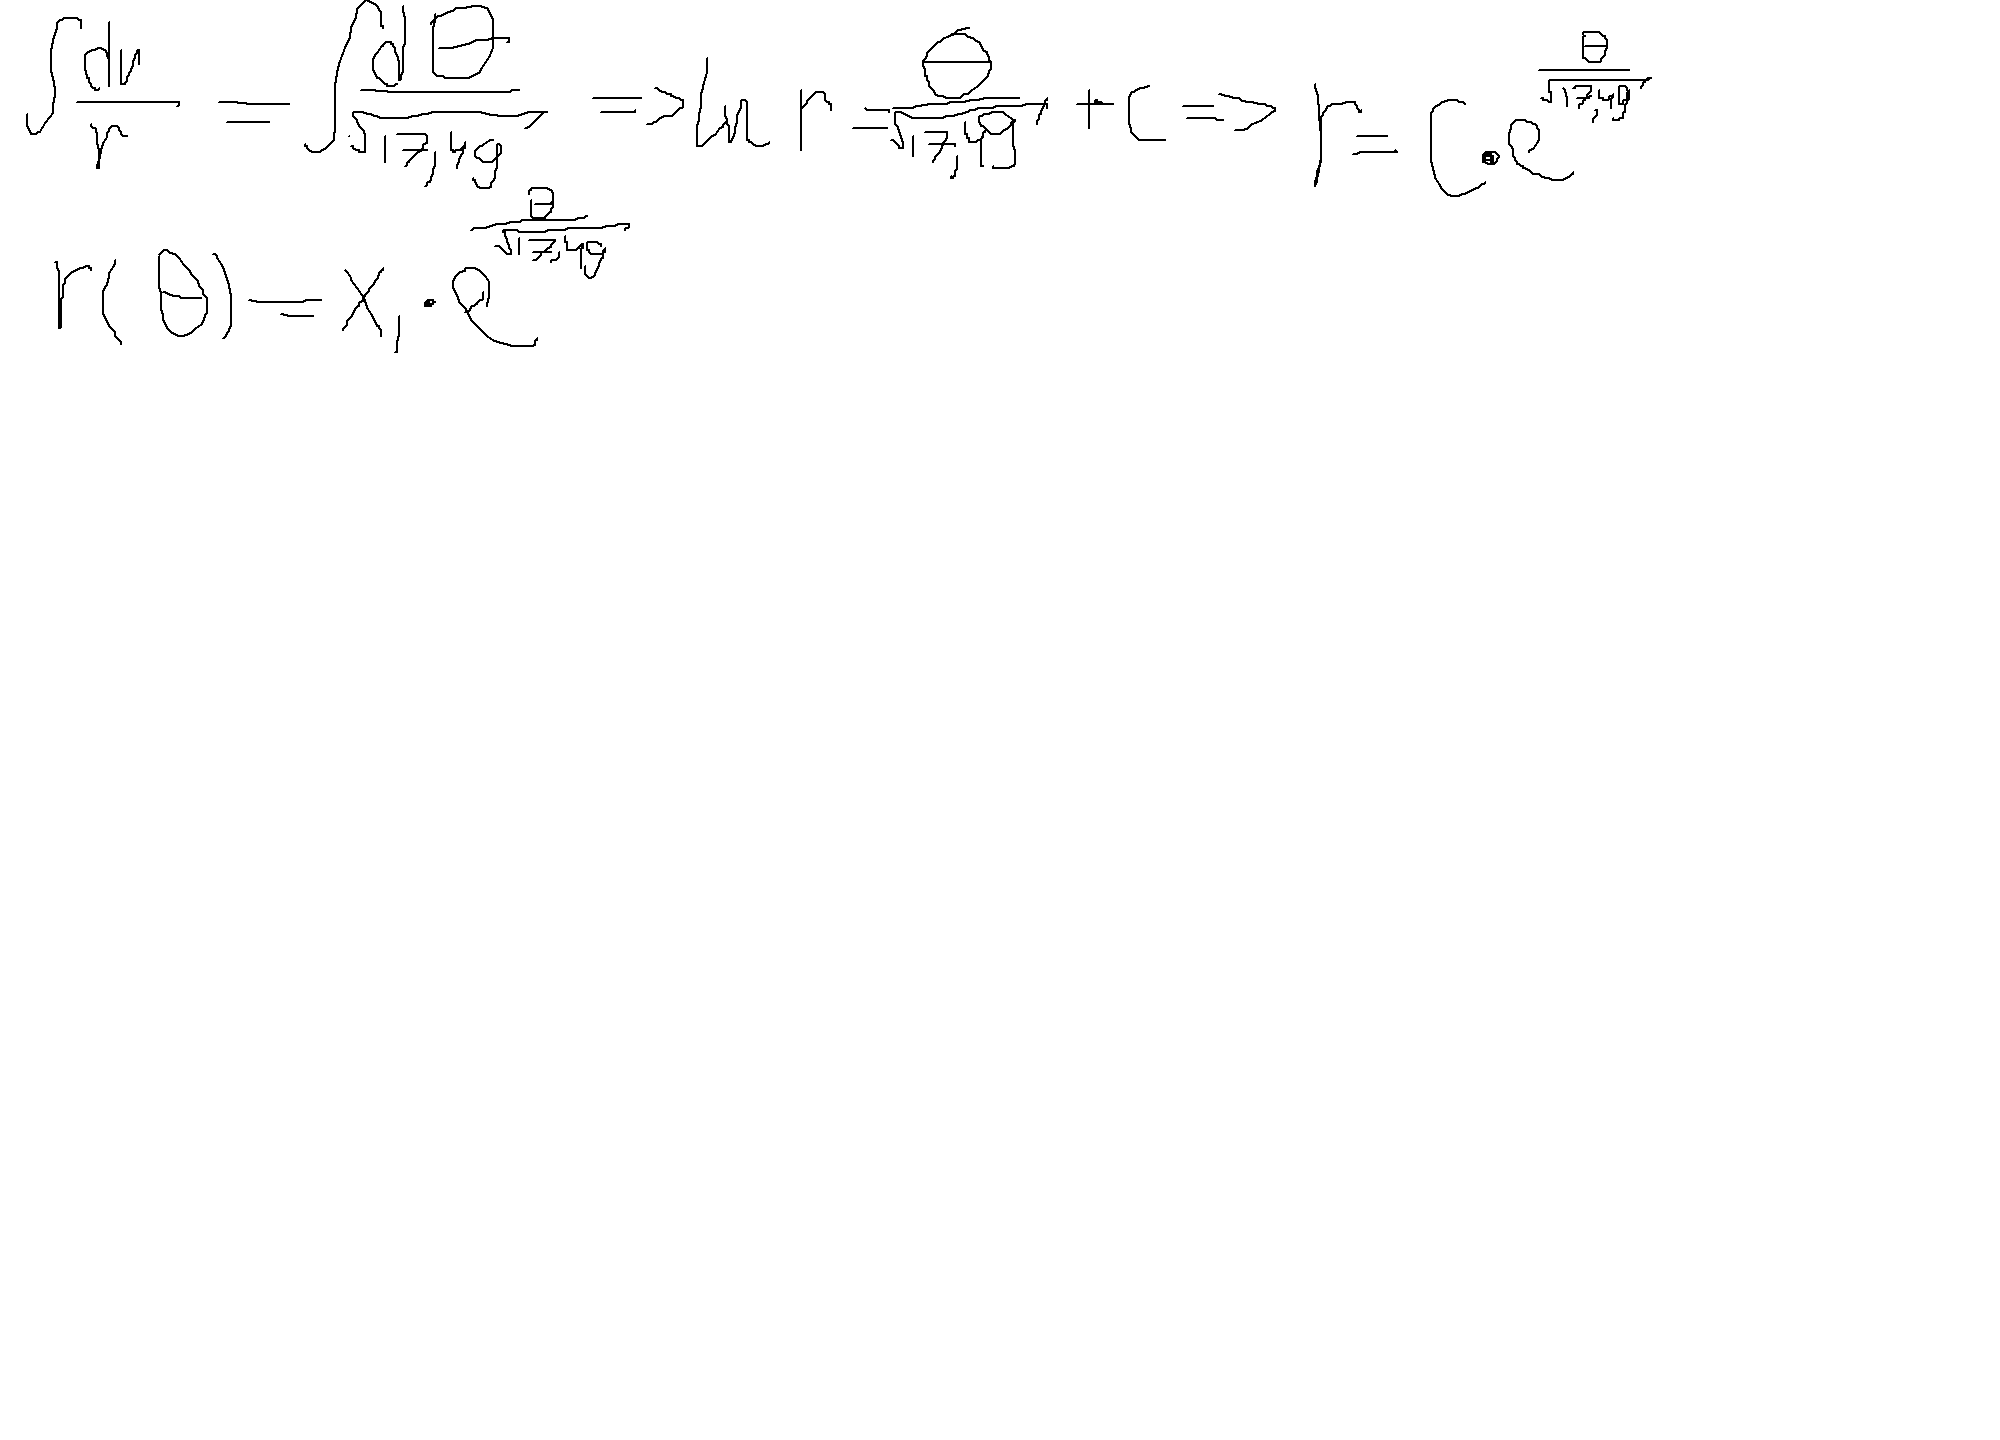 ∫ dr/r = ∫ dθ/√17,49 => ln r = θ/√17,49 + C => r = C · e^(θ/√17,49)
r(θ) = x₁ · e^(θ/√17,49)